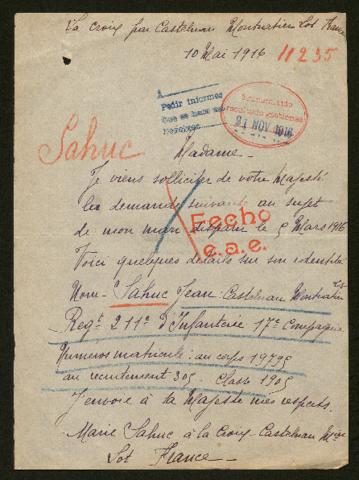 La Croix par Castelnau Montratier Lot France
10 Mai 1916 11235
Pedir informes
Sahuc
Madame -
Je viens solliciter de votre Majesté
la demande suivante au sujet
de mon mari disparu le 9 Mars 1916
Fecho
c.a.e.
Voici quelques détails sur son identité
Nom - Sahuc Jean. Castelnau Montratier Lot
Regt 211e d'Infanterie 17e Compagnie
Numeros matricule: au corps
au recrutement 305 Classe 1905
J'envoie à sa Majesté mes respects.
Marie Sahuc à la Croix Castelnau
Lot France -